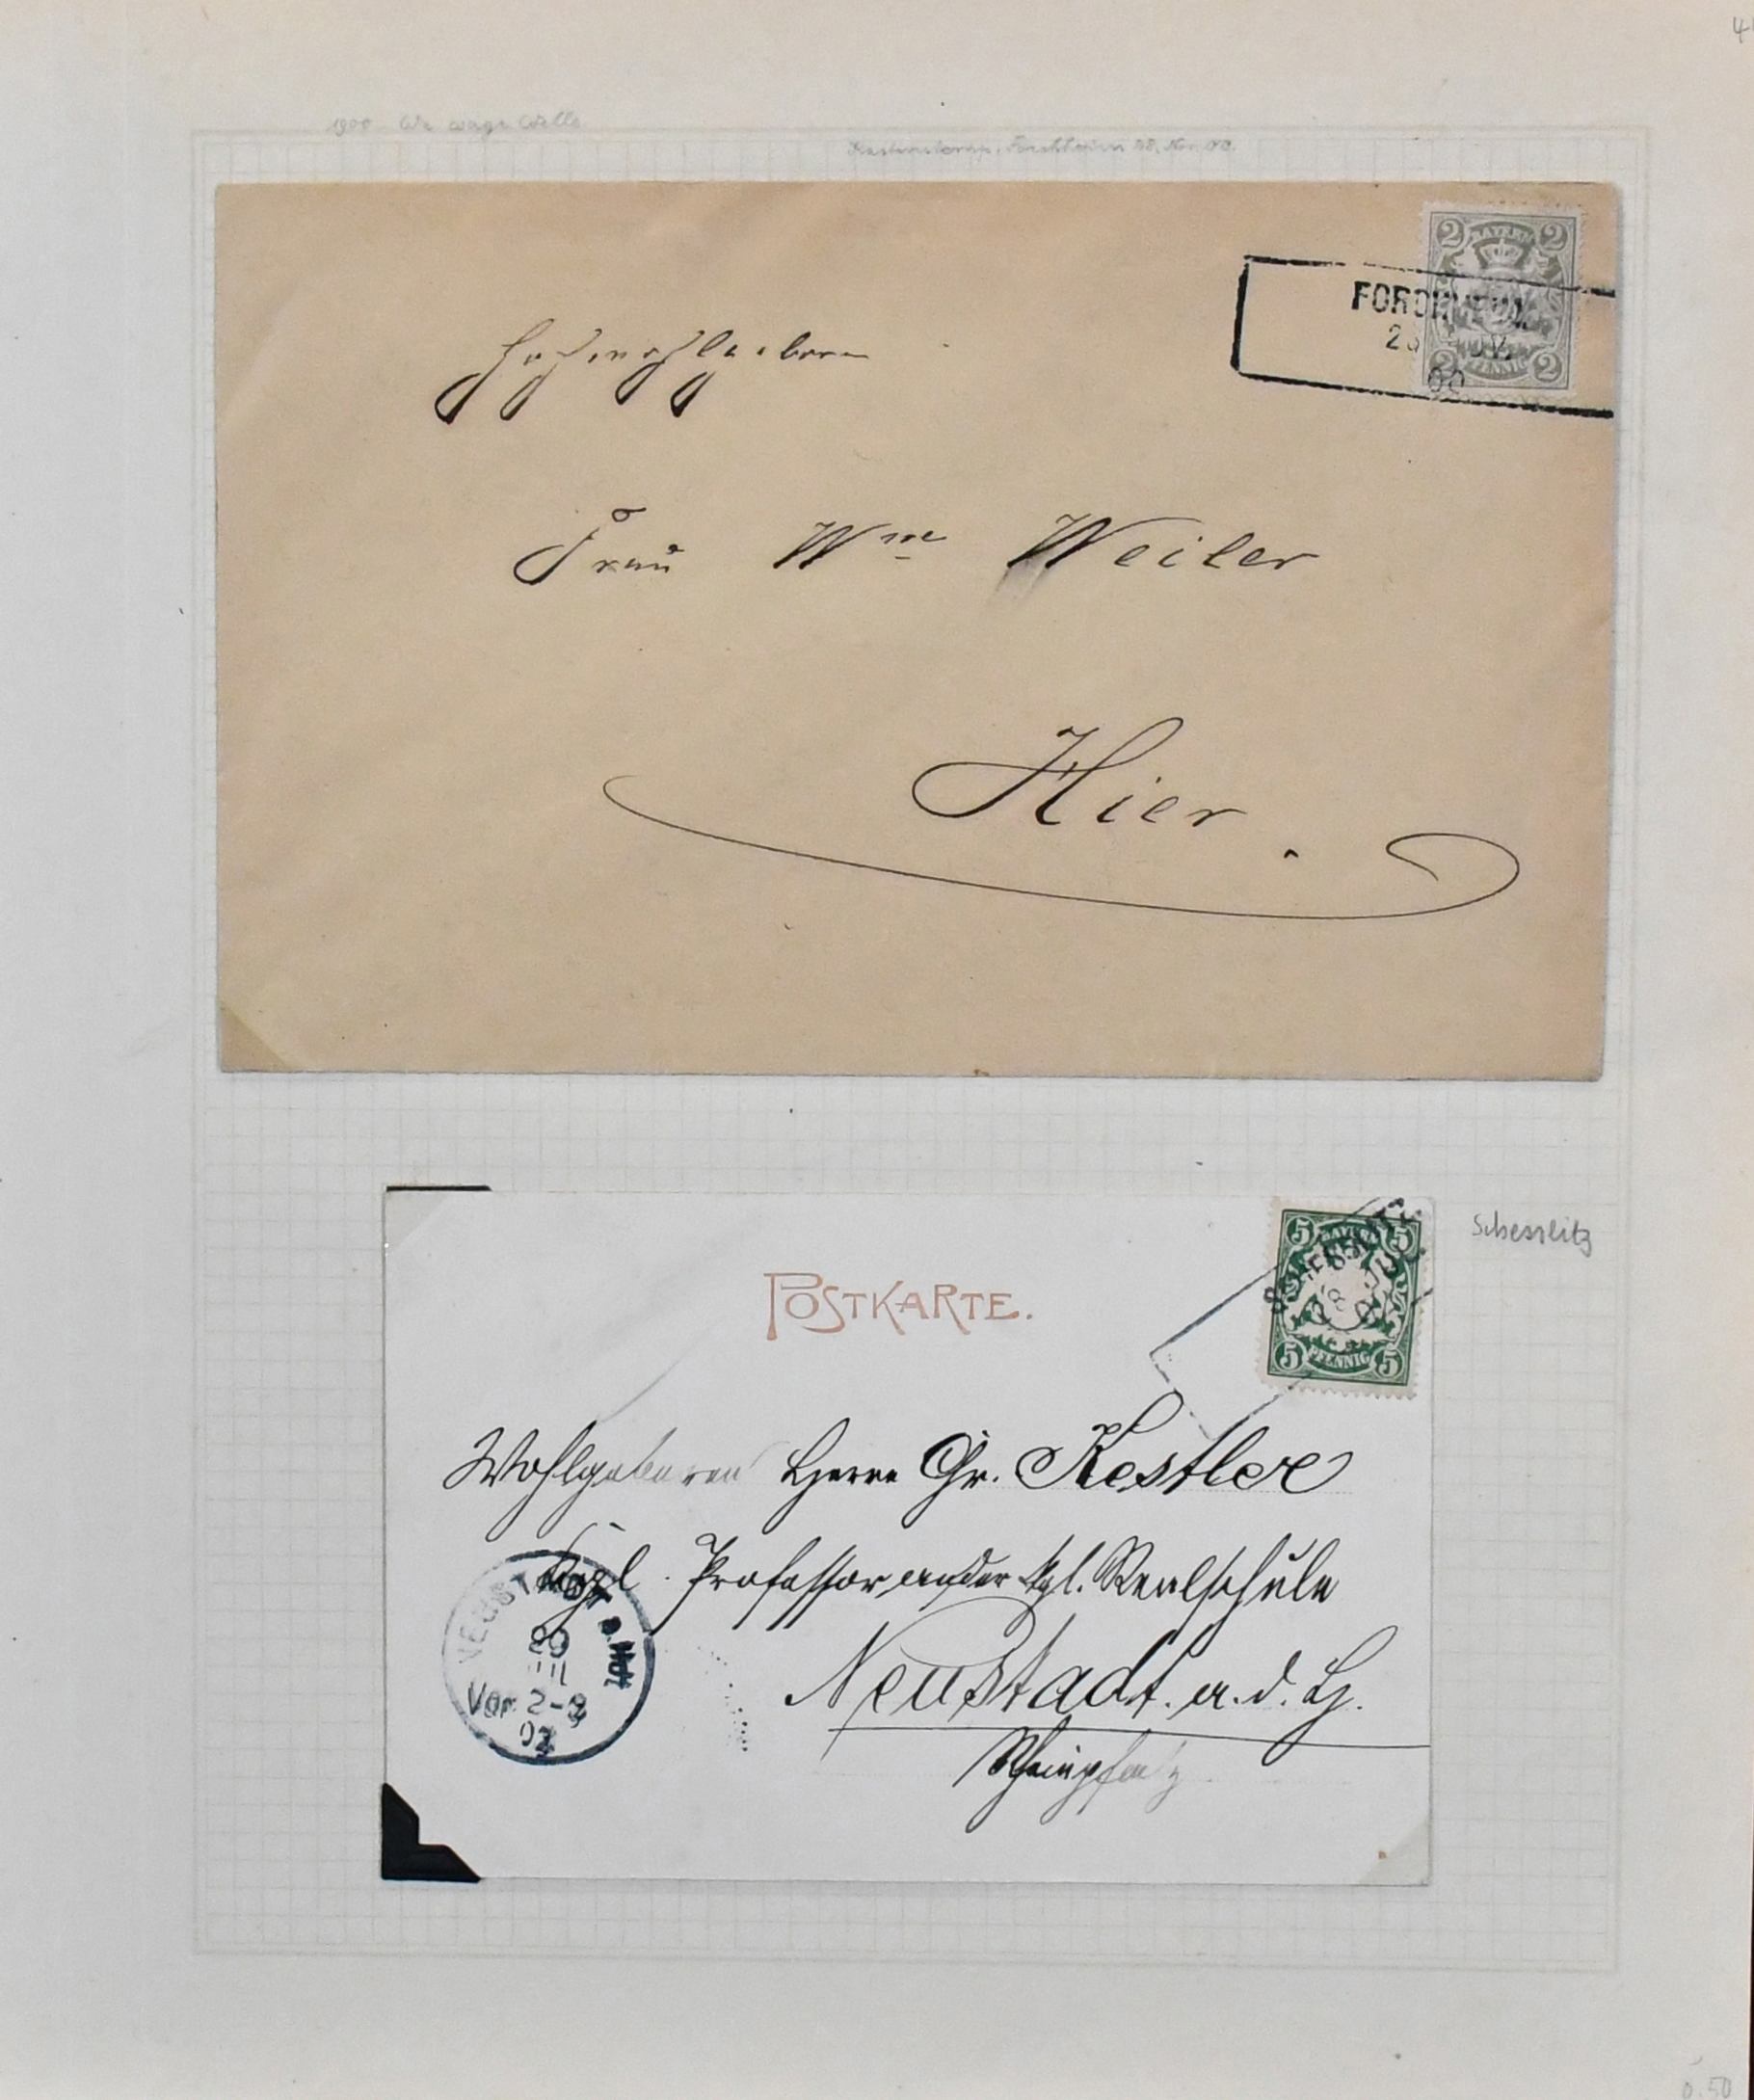 1900
Forchheim 28. Nov. 00.
BAYERN
2 2
FORCHHEIM
28 NOV.
00
2 2
PFENNIG
Hochwohlgeboren
Frau Wwe Weiler
Hier.
Schesslitz
5 5
SCHESSLITZ
5 5
PFENNIG
POSTKARTE.
Wohlgeboren Herrn Chr. Kestler
Kgl. Professor an der kgl. Realschule
NEUSTADT a. HDT
20
VIII
Vor. 2-3
02
Neustadt. a. d. H.
Rheinpfalz
0.50